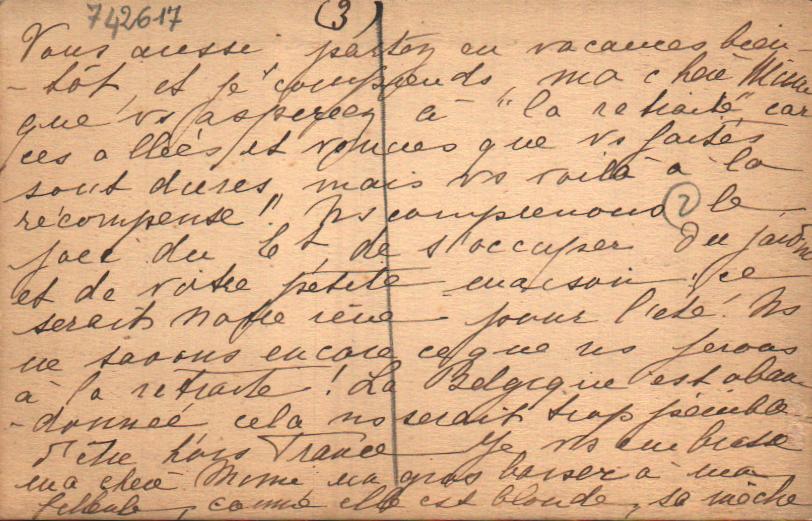 742617
(3)
Vous aussi partez en vacances bien
-tôt, et je comprends, ma chère Mimi
que vs aspirez à "la retraite" car
ces allées et venues que vs faites
sont dures, mais vs voilà à la
récompense! Ns comprenons le
2
joie du Ct de s'occuper du jardin
et de votre petite maison! ce
serait notre rêve pour l'été! Ns
ne savons encore ce que ns ferons
à la retraite! La Belgique est aban
-donnée cela ns serait trop pénible
d'être hors France. Je vs embrasse
ma chère Mimi un gros baiser à ma
filleule, comme elle est blonde, sa mèche